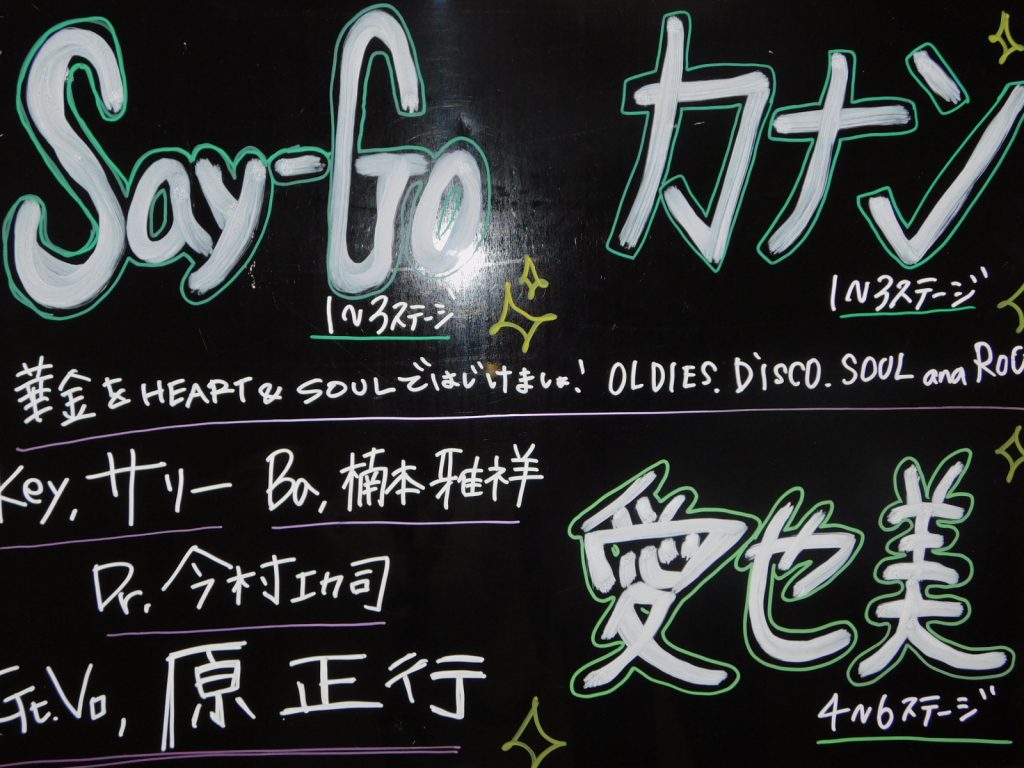 Say-Go カナン
1~3ステージ 1~3ステージ
華金をHEART & SOULではじけましょ! OLDIES. DISCO. SOUL and ROC
Key, サリー Ba, 楠本雅祥
Dr. 今村功司
Gt.Vo, 原 正行
愛也美
4~6ステージ